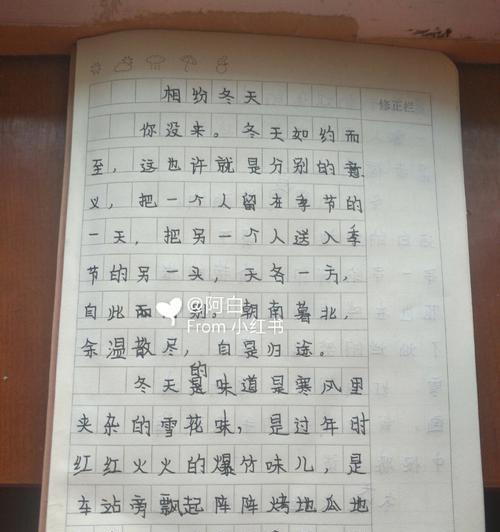 相纷冬天
修正栏
你没来。冬天如约而
至，这也许就是分别的意
义，把一个人留在季节的
一天，把另一个人送入季
节的另一头，天各一方，
自此而别。朝南暮北，
@阿白
From 小红书
余温散尽，自是归途。
的
冬天是味道是寒风里
夹杂的雪花味，是过年时
红红火火的爆竹味儿，是
车站旁飘起阵阵烤地瓜地